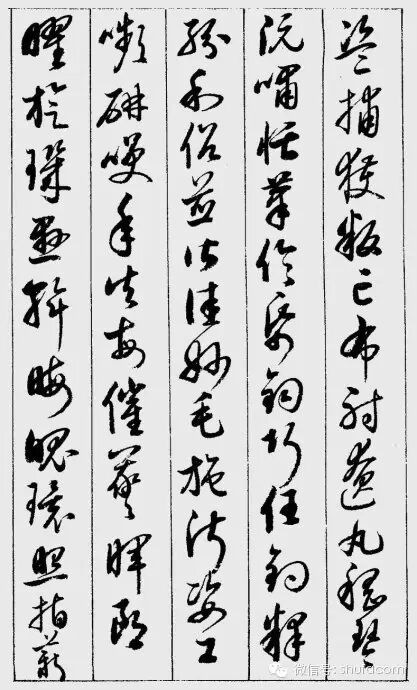 盜捕獲叛亡布射遼丸嵇琴
阮嘯恬筆倫紙鈞巧任釣釋
紛利俗並皆佳妙毛施淑姿工
嚬研咲年矢每催羲暉朗
曜旋璣懸斡晦魄環照指薪
微信号: